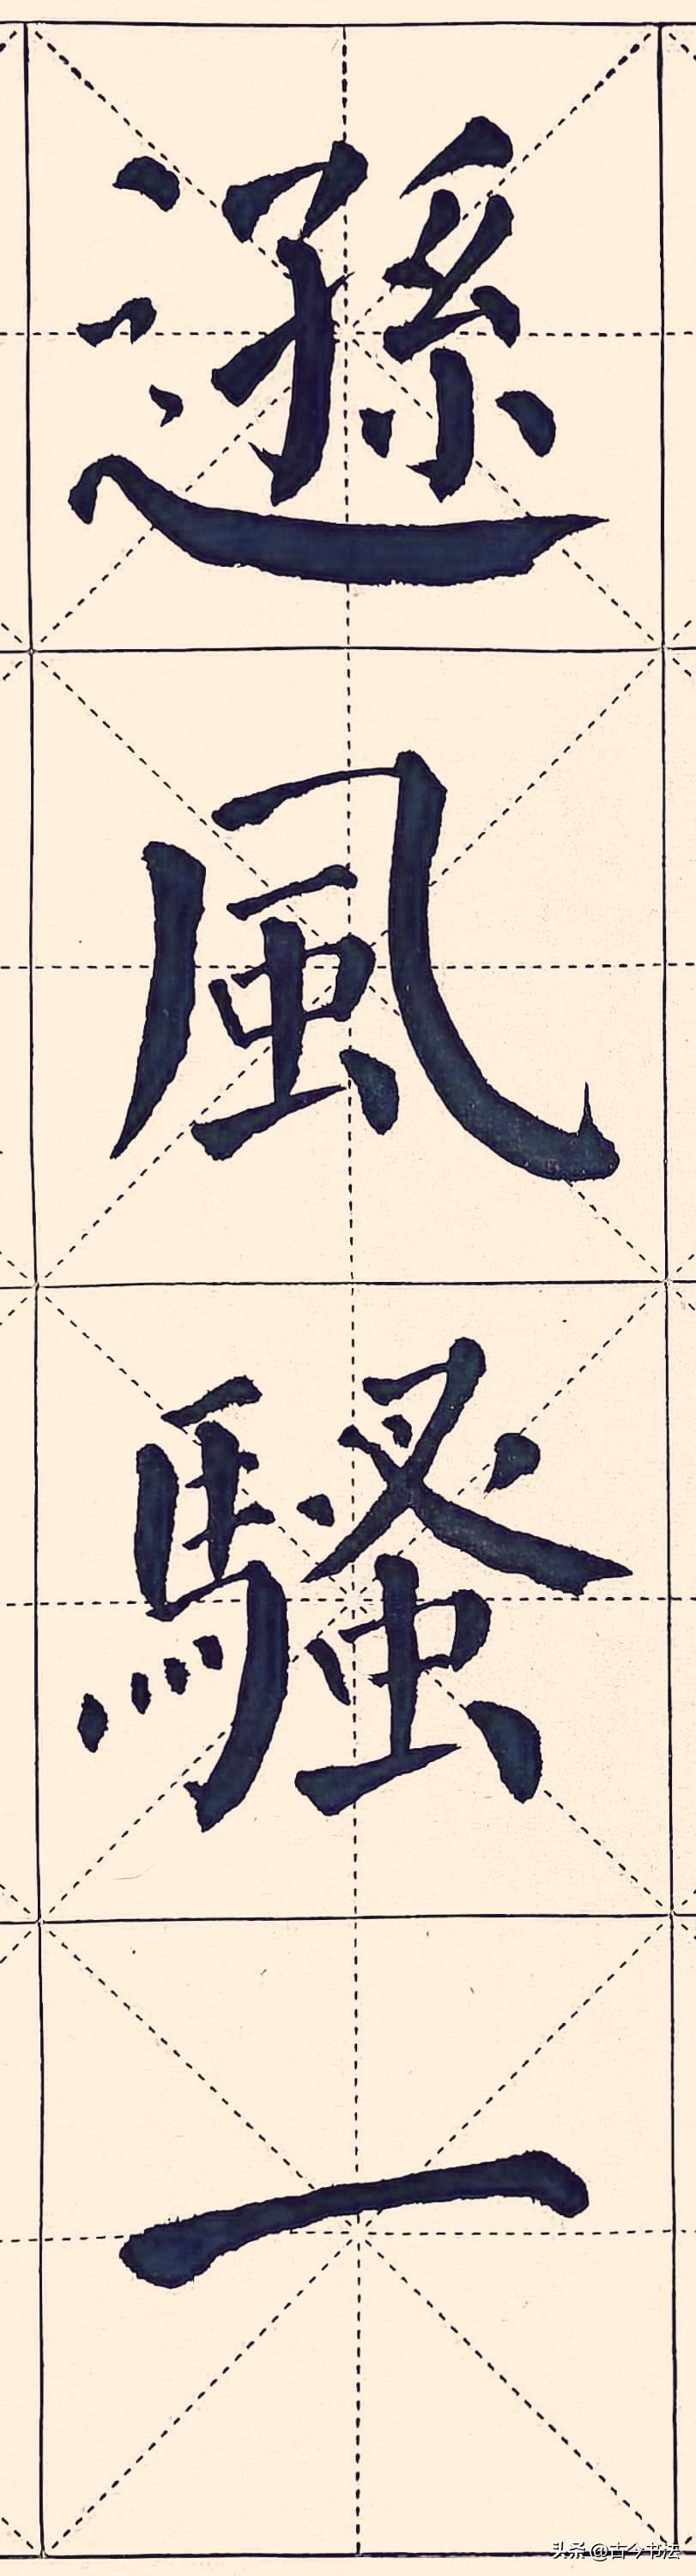 遜風騷一
头条 @古今书法